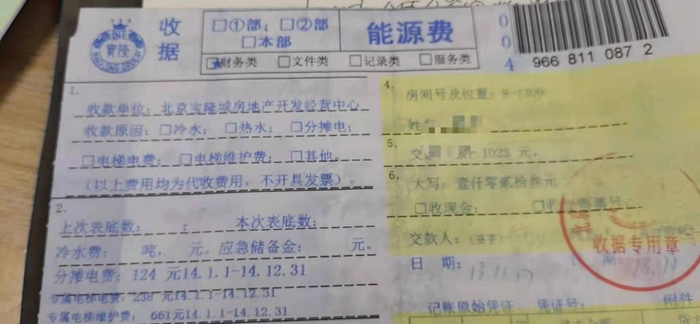 寶隆
收据
□①部; □②部
□本部
能源费
004
966 811 087 2
财务类 □文件类 □记录类 □服务类
1.
收款单位: 北京宝隆城房地产开发经营中心
收款原因: □冷水; □热水; □分摊电;
□电梯电费; □电梯维护费; □其他。
(以上费用均为代收费用,不开具发票)。
2.
上次表底数: ; 本次表底数:
冷水费: 吨, 元。应急储备金: 元。
分摊电费: 124 元14.1.1-14.12.31
专属电梯电费: 238 元14.1.1-14.12.31
专属电梯维护费: 661元14.1.1-14.12.31
4.
房间号及位置: 8-1309
姓
5.
交 1023 元,
6.
大写: 壹仟零贰拾叁元
□收现金; □收
交款人: (签字)
日 期:
收据专用章
记账原始凭证 凭证号: 附件